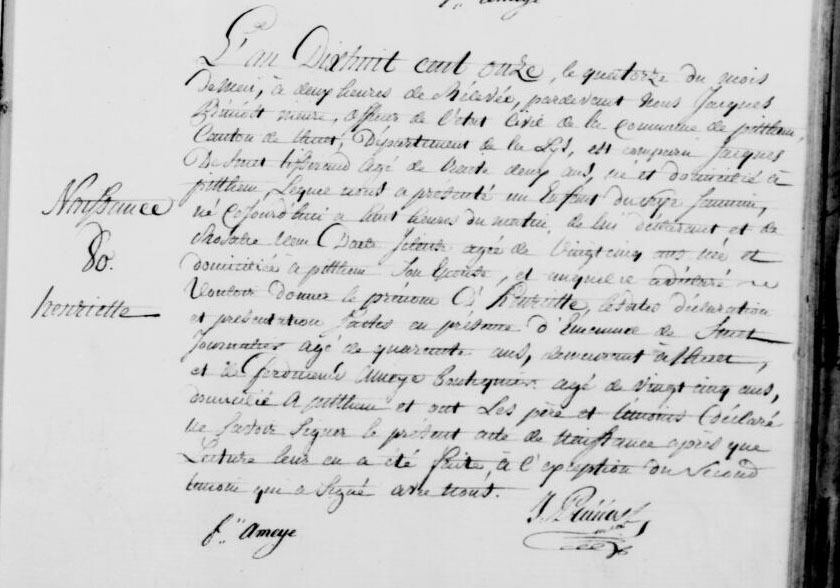 L'an Dixhuit cent onze, le quatorze du mois
de mai, à deux heures de Rélevée, pardevant nous Jacques
maire, officier de l'état civil de la commune de pitthem,
Canton de thielt, Département de la Lys, est comparu Jacques
De Smet tisserand agé de trente deux ans, né et domicilié à
pitthem, Lequel nous a presenté un Enfant du sexe feminin,
né cejourd'hui a huit heures du matin, de lui déclarant et de
agée de vingt cinq ans née et
Naissance
domiciliée à pitthem son Epouse, et auquel il a déclaré
80.
Vouloir donner le prénom d'henriette, lesdites déclaration
henriette
et présentation faites en présence d' de Smet
Journalier agé de quarante ans, demeurant à thielt,
et de ferdinand Ameye Boutiquier agé de vingt cinq ans,
domicilié à pitthem et ont Les père et témoins déclaré
ne savoir signer le present acte de Naissance après que
Lecture leur en a été faite, à l'exception du second
temoin qui a signé avec nous.
f.. Ameye